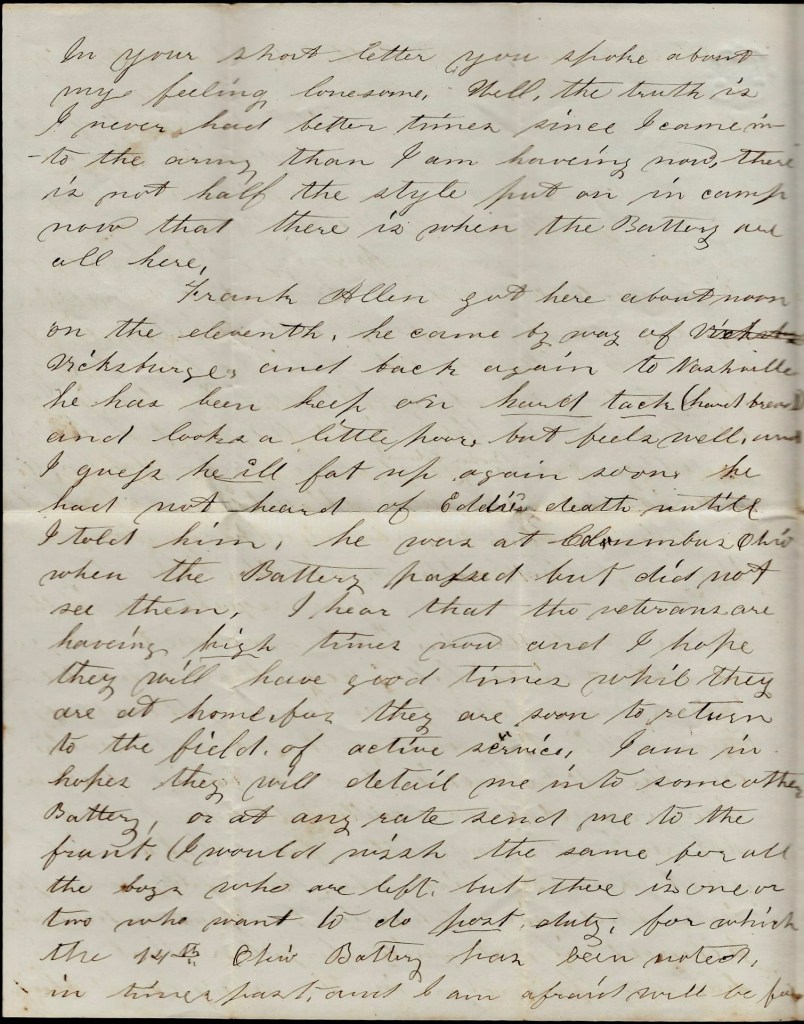 In your short letter you spoke about
my feeling lonesome, Well, the truth is
I never had better times since I came in-
-to the army than I am haveing now, there
is not half the style put on in camp
now that there is when the Battery are
all here,
Frank Allen got here about noon
on the eleventh, he came by way of
Vicksburge, and back again to Nashville
he has been keep on hard tack (hard bread)
and looks a little poor, but feels well, and
I guess he ill fat up again soon, he
had not heard of Eddie's death untill
I told him, he was at Columbus Ohio
when the Battery passed but did not
see them, I hear that the veterans are
haveing high times now and I hope
they will have good times whil they
are at home, for they are soon to return
to the field, of active service, I am in
hopes they will detail me into some other
Battery, or at any rate send me to the
frunt, (I would wish the same for all
the boys who are left, but there is one or
two who want to do post, duty, for which
the 14th Ohio Battery has been noted,
in times past, and I am afraid will be for